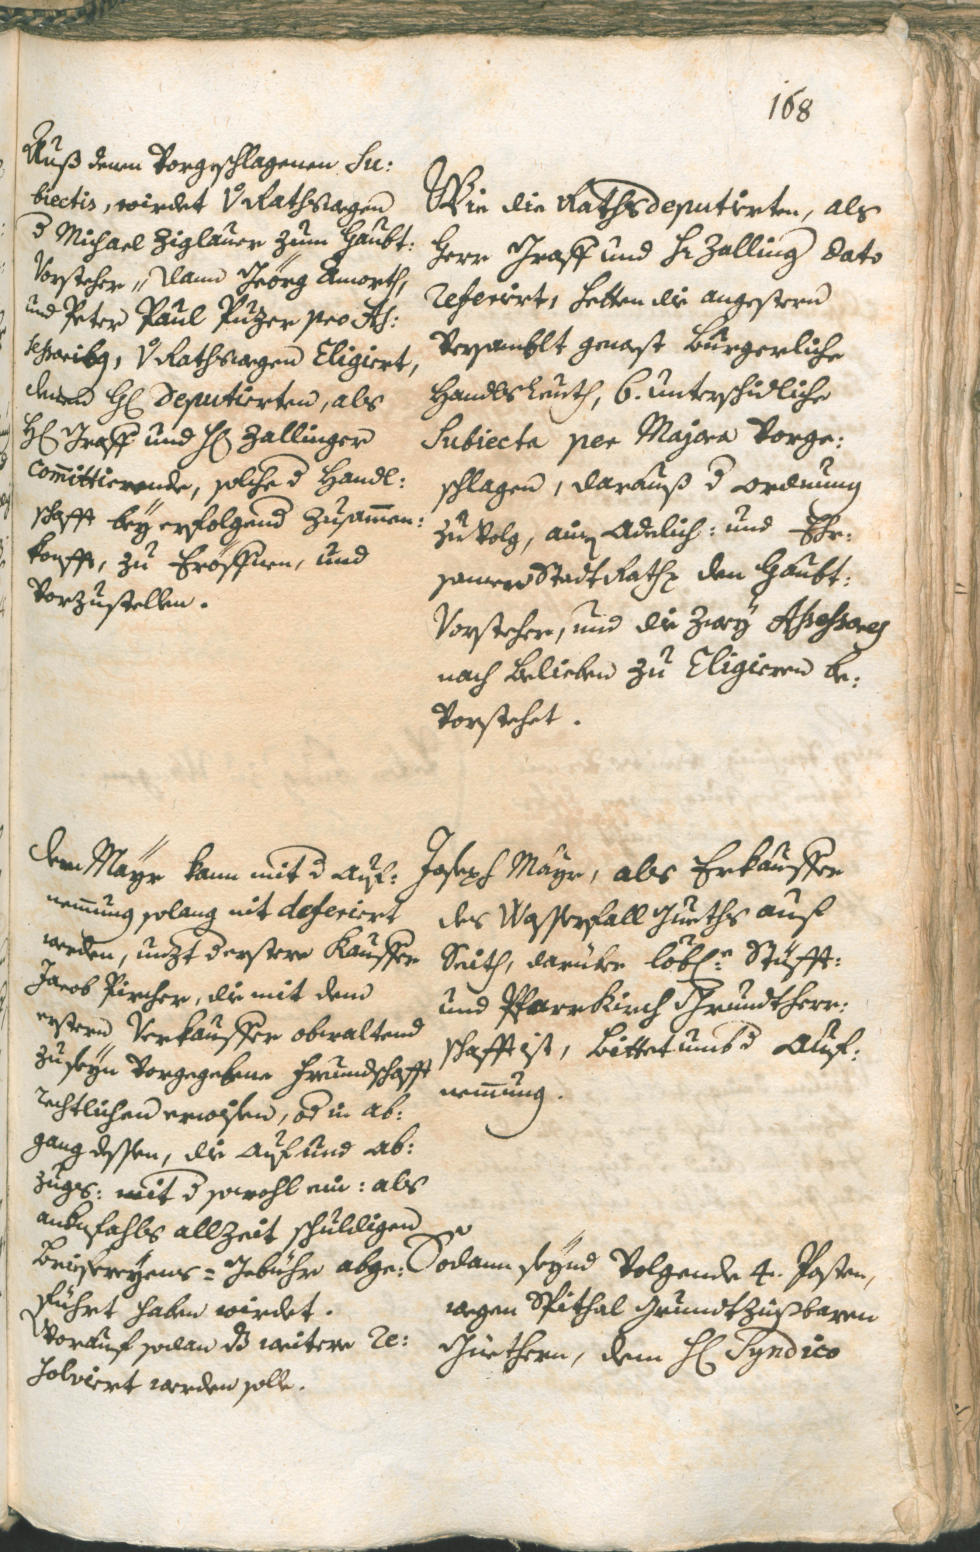 168
Auß denen Vorgeschlagenen Su:
biectis, wirdet V Rathswegen
d Michael Ziglauer zum Haubt:
Vorsteher, dann Georg Amorth,
und Peter Paul Puzer pro As:
sessoribus, V Rathswegen Eligiert,
denen H Deputierten, als
H Graff und H Zallinger
committierende, solche d Handl:
schafft bey erfolgend Zusamen:
konfft, zu Eröffnen, und
Vorzustellen.
Wie die Raths deputirten, als
Herr Graff und H Zalling dato
referirt, hetten die angestern
Versamblt geweste Bürgerliche
Handls Leuth, 6. unterschidliche
Subiecta per Majora Vorge:
schlagen, darauß d ordnung
zu Volg, ainem Adelich: und Ehr:
samen Stadt Rath den Haubt:
Vorsteher, und die zwey Assessores
nach Belieben zu Eligieren be:
Vorstehet.
dem Mayr kann mit d Auf:
nemung solang nit deferiert
werden, unzt der erstere Kauffer
Jacob Pircher, die mit dem
erstern Verkauffer obwaltend
zu seyn Vorgegebene Freundschafft
rechtlichen erwisen, od in ab:
gang dessen, die Auf und Ab:
zugs: mit d sowohl ein: als
andernfahls allzeit schuldigen
Brieffereyens= Gebühr abge:
führt haben wirdet.
Worauf sodan dz weitere re:
solviert werden solle.
Joseph Mayr, als Erkauffer
des Wasserfall Gueths auß
Seith, darüber löbl: Stüfft:
und Pfarrkirch Grundtherr:
schafft ist, bittet umb d Auf:
nemung.
Sodann seynd Volgende 4. Posten,
wegen Spithal Grundtzinßbaren
Güethern, dem H Syndico